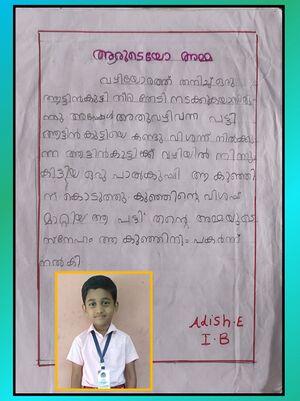 ആരുടെയോ അമ്മ
വഴിയോരത്ത് തനിച്ച് ഒരു
ആട്ടിൻകുട്ടി
അപ്പോൾ അതുവഴിവന്ന പട്ടി
ആട്ടിൻ കുട്ടിയെ കണ്ടു വിശന്ന് നിൽക്കു
ന്ന ആട്ടിൻകുട്ടിക്ക് വഴിയിൽ നിന്നും
കിട്ടിയ ഒരു പാൽകുപ്പി ആ കുഞ്ഞി
ന് കൊടുത്തു. കുഞ്ഞിന്റെ വിശപ്പ്
മാറ്റിയ ആ പട്ടി തന്റെ അമ്മയുടെ
സ്നേഹം ആ കുഞ്ഞിനും പകർന്ന്
നൽകി
Adish.E
I.B